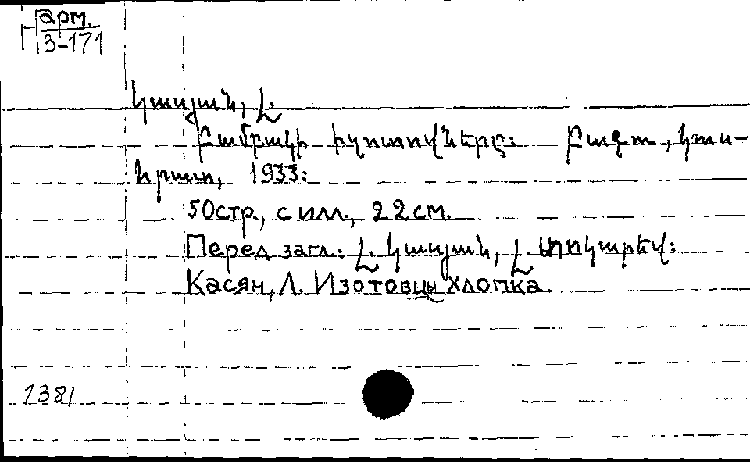 арм.
3-171
Կասյան, Լ.
Բամբակի իզոտովները: Բագու, կուս-
հրատ, 1933:
50стр., с илл., 22см.
Перед загл.: Լ. Կասյան, Լ.
Касян, Л. Изотовцы хлопка.
1381